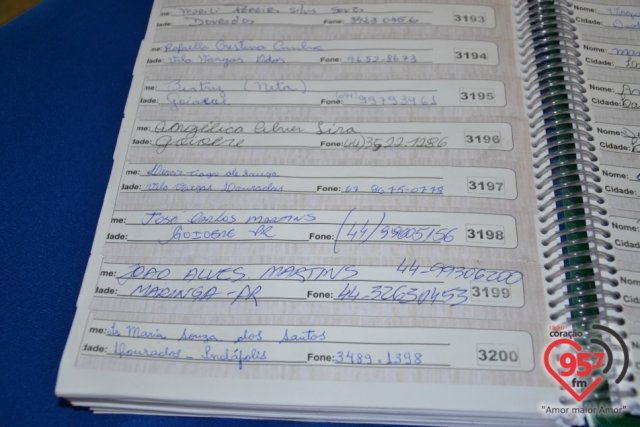 me: Marili
dade: Dourados Fone: 3423 0956 3193
me: Rafaella Cristina Cunha
dade: Vila Vargas Ddos Fone: 9652-8673 3194
me: Beatriz (Neta)
dade: Goioerê Fone: (044) 99793461 3195
me: Angélica Lira
dade: Goioere Fone: (44) 3522-1286 3196
me: Tiago de Souza
dade: Vila Vargas Dourados Fone: 67 9675-0778 3197
me: Jose Carlos MARTINS
dade: GOIOERE PR Fone: (44) 99805156 3198
me: JOAO ALVES MARTINS 44-99306200
dade: MARINGA-PR Fone: 44-32630453 3199
me: Maria Souza dos Santos
dade: Dourados - Indápolis Fone: 3489-1398 3200
Nome:
Cidade:
Nome:
Cidade:
Nome:
Cidade:
Nome:
Cidade:
rádio
coração
95,7
fm
"Amor maior Amor"